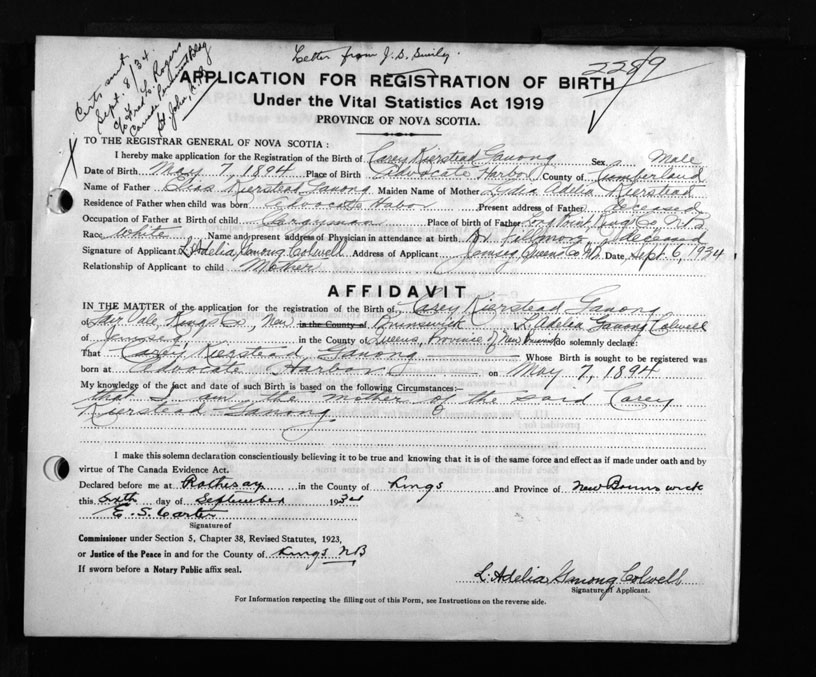 Letter from J. S. Smily
Certs sent
Sept. 8/34
c/o Fred G. Rogers
Canada Permanent Bldg
St John, N.B.
2289
APPLICATION FOR REGISTRATION OF BIRTH
Under the Vital Statistics Act 1919
PROVINCE OF NOVA SCOTIA.
X
TO THE REGISTRAR GENERAL OF NOVA SCOTIA:
I hereby make application for the Registration of the Birth of Carey Kierstead Ganong Sex Male
Date of Birth May 7, 1894 Place of Birth Advocate Harbor County of Cumberland
Name of Father Kierstead Ganong Maiden Name of Mother Lydia Adelia Kierstead
Residence of Father when child was born Advocate Habor Present address of Father Deceased
Occupation of Father at Birth of child Clergyman Place of Birth of Father Long Point Kings Co N.B
Race White Name and present address of Physician in attendance at birth Dr. deceased
Signature of Applicant L. Adelia Ganong Colwell Address of Applicant Jemseg Queens Co N.B. Date Sept. 6, 1934
Relationship of Applicant to child Mother
AFFIDAVIT
IN THE MATTER of the application for the registration of the Birth of Carey Kierstead Ganong
of Fair Vale, Kings Co, New is the County of Brunswick I, L. Adelia Ganong Colwell
of Jemseg in the County of Queens, Province of New Brunswick do solemnly declare:
That Carey Kierstead Ganong Whose Birth is sought to be registered was
born at Advocate Harbor on May 7, 1894
My knowledge of the fact and date of such Birth is based on the following Circumstances:—
that I am the mother of the said Carey
Kierstead Ganong
I make this solemn declaration conscientiously believing it to be true and knowing that it is of the same force and effect as if made under oath and by
virtue of The Canada Evidence Act.
Declared before me at Rothesay in the County of Kings and Province of New Brunswick
this Sixth day of September 1934
E. S. Carter
Signature of
Commissioner under Section 5, Chapter 38, Revised Statutes, 1923,
or Justice of the Peace in and for the County of Kings N B
If sworn before a Notary Public affix seal.
L. Adelia Ganong Colwell
Signature of Applicant.
For Information respecting the filling out of this Form, see Instructions on the reverse side.